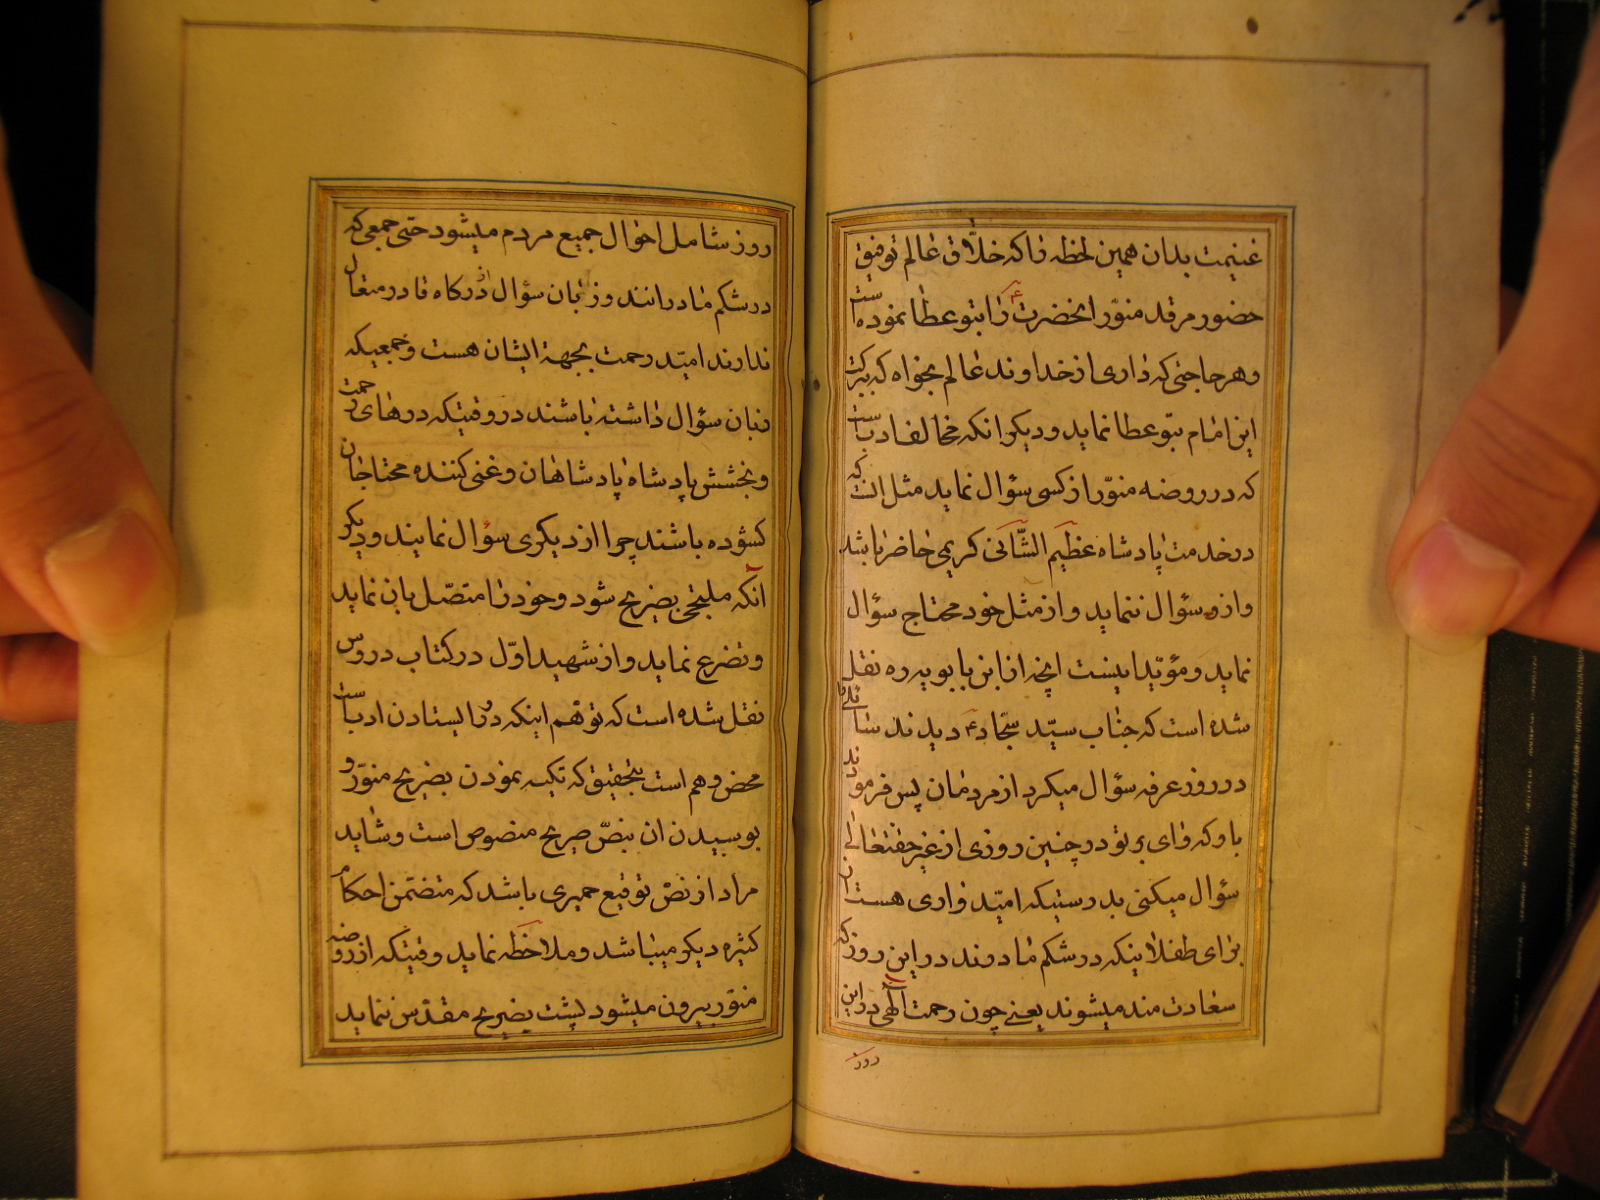 غنیمت بدان همین لحظه را که خلاق عالم توفیق
حضور مرقد منوّر انحضرت ع را بتو عطا نموده است
و هر حاجتی که داری از خداوند عالم بخواه که ببرکت
این امام بتو عطا نماید و دیکر انکه مخالف ادبست
که در روضه منوّر از کسی سؤال نماید مثل انست که
در خدمت پادشاه عظیم الشّانی کریمی حاضر باشد
و ازو سؤال ننماید و از مثل خود محتاج سؤال
نماید و مؤیّد اینست انچه از ابن بابویه ره نقل
شده است که جناب سیّد سجّاد ع دیدند سائلی را
در روز عرفه سؤال میکرد از مردمان پس فرمودند
باو که وای بر تو در چنین روزی از غیر حقتعالی
سؤال میکنی بدرستیکه امیّد واری هست ان
برای طفلانیکه در شکم مادرند در این روز که
سعادت مند میشوند یعنے چون رحمت الٓهی در این
روز
روز شامل احوال جمیع مردم میشود حتی جمعی که
در شکم مادرانند و زبان سؤال از درکاه قادر متعال
ندارند امیّد رحمت بجهة ایشان هست و جمعیکه
زبان سؤال داشته باشند در وقتیکه درهای رحمت
و بخشش پادشاه پادشاهان و غنی کننده محتاجان
کشوده باشند چرا از دیکری سؤال نمایند و دیکر
آنکه ملتجی بضریح شود و خود را متصّل بان نماید
و تضرع نماید و از شهید اوّل در کتاب دروس
نقل شده است که توهم اینکه دور ایستادن ادبست
محض وهم است بتحقیق که تکیه نمودن بضریح منوّر و
بوسیدن ان بنصّ صریح منصوص است و شاید
مراد از نصّ توقیع حمیری باشد که متضمن احکام
کثیره دیکر میباشد و ملاحظه نماید وقتیکه از روضه
منوّر بیرون میشود پشت بضریح مقدّس ننماید